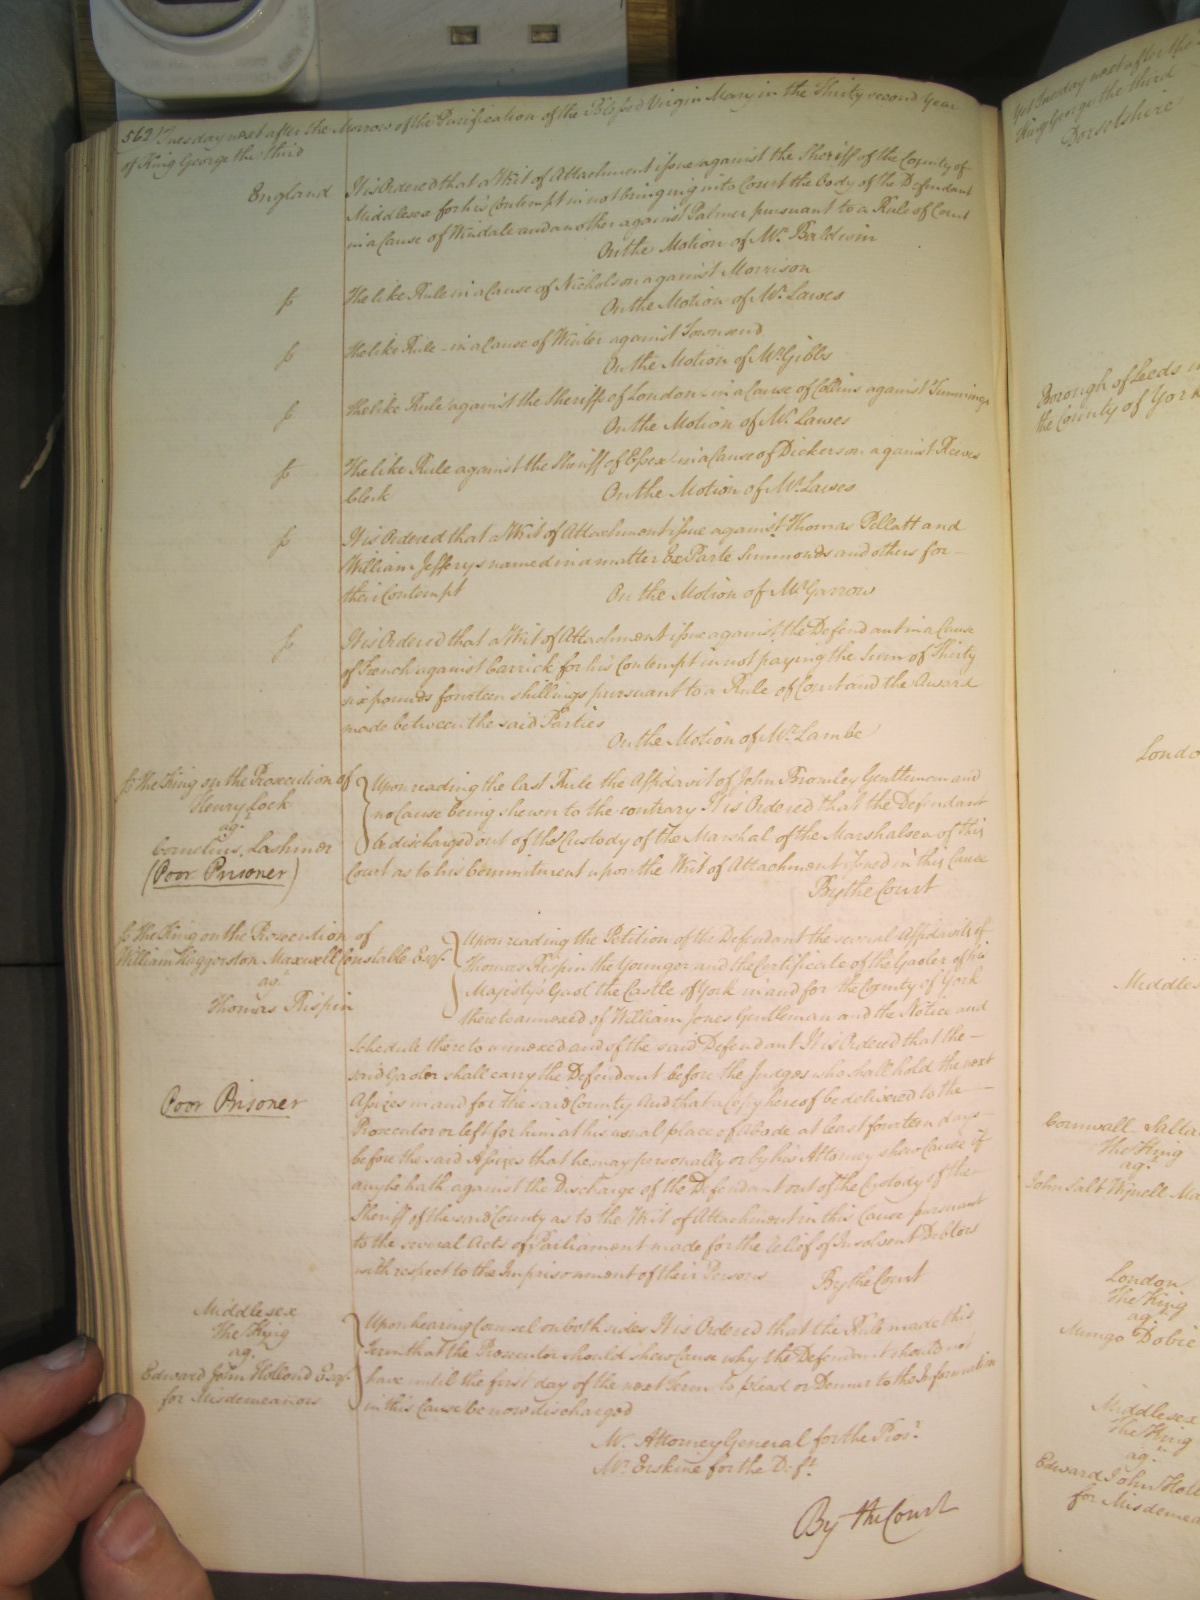 562 Tuesday next after the Morrow of the Purification of the Blessed Virgin Mary in the Thirty second Year
of King George the third
England
It is Ordered that a Writ of Attachment issue against the Sheriff of the County of
Middlesex for his Contempt in not bringing into Court the body of the Defendant
in a Cause of Windale and another against Palmer pursuant to a Rule of Court
On the Motion of Mr. Baldwin
The like Rule in a Cause of Nicholson against Morrison
On the Motion of Mr. Lawes
The like Rule in a Cause of Winter against Townsend
On the Motion of Mr. Gibbs
The like Rule against the Sheriffs of London in a Cause of Collins against Timmings
On the Motion of Mr. Lawes
The like Rule against the Sheriff of Essex in a Cause of Dickerson against Reeves
Clerk On the Motion of Mr. Lawes
It is Ordered that a Writ of Attachment issue against Thomas Pellatt and
William Jefferys named in a matter Ex Parte Simmonds and others for
their Contempt On the Motion of Mr. Garrow
It is Ordered that a Writ of Attachment issue against the Defendant in a Cause
of French against Carrick for his Contempt in not paying the Sum of Thirty
six pounds fourteen shillings pursuant to a Rule of Court and the Award
made between the said Parties
On the Motion of Mr. Lambe
The King on the Prosecution of
Henry Lock
agt.
Cornelius Lashmer
(Poor Prisoner)
Upon reading the last Rule the Affidavit of John Bromley Gentleman and
no Cause being shewn to the contrary It is Ordered that the Defendant
be discharged out of the Custody of the Marshal of the Marshalsea of this
Court as to his Commitment upon the Writ of Attachment issued in this Cause
By the Court
The King on the Prosecution of
William Haggerston Maxwell Constable Esqr.
agt.
Thomas Rispin
Poor Prisoner
Upon reading the Petition of the Defendant the several Affidavits of
Thomas Rispin the Younger and the Certificate of the Gaoler of his
Majesty's Gaol the Castle of York in and for the County of York
thereto annexed of William Jones Gentleman and the Notice and
Schedule thereto annexed and of the said Defendant It is Ordered that the
said Gaoler shall carry the Defendant before the Judges who shall hold the next
Assizes in and for the said County And that a Copy hereof be delivered to the
Prosecutor or left for him at his usual place of Abode at least fourteen days
before the said Assizes that he may personally or by his Attorney shew Cause if
any he hath against the Discharge of the Defendant out of the Custody of the
Sheriff of the said County as to the Writ of Attachment in this Cause pursuant
to the several Acts of Parliament made for the relief of Insolvent Debtors
with respect to the Imprisonment of their Persons By the Court
Middlesex
The King
agt.
Edward John Holland Esqr.
for Misdemeanors
Upon hearing Counsel on both sides It is Ordered that the Rule made this
Term that the Prosecutor should shew Cause why the Defendant should not
have until the first day of the next Term to plead or Demur to the Information
in this Cause be now discharged
Mr. Attorney General for the Prosr.
Mr. Erskine for the Deft.
By the Court
Yet Tuesday next after the
King George the third
Dorsetshire
Borough of Leeds in
the County of York
London
Middlesex
Cornwall
The King
agt.
London
The King
agt.
Mungo Dobie
Middlesex
The King
agt.
Edward John Holl
for Misdemea